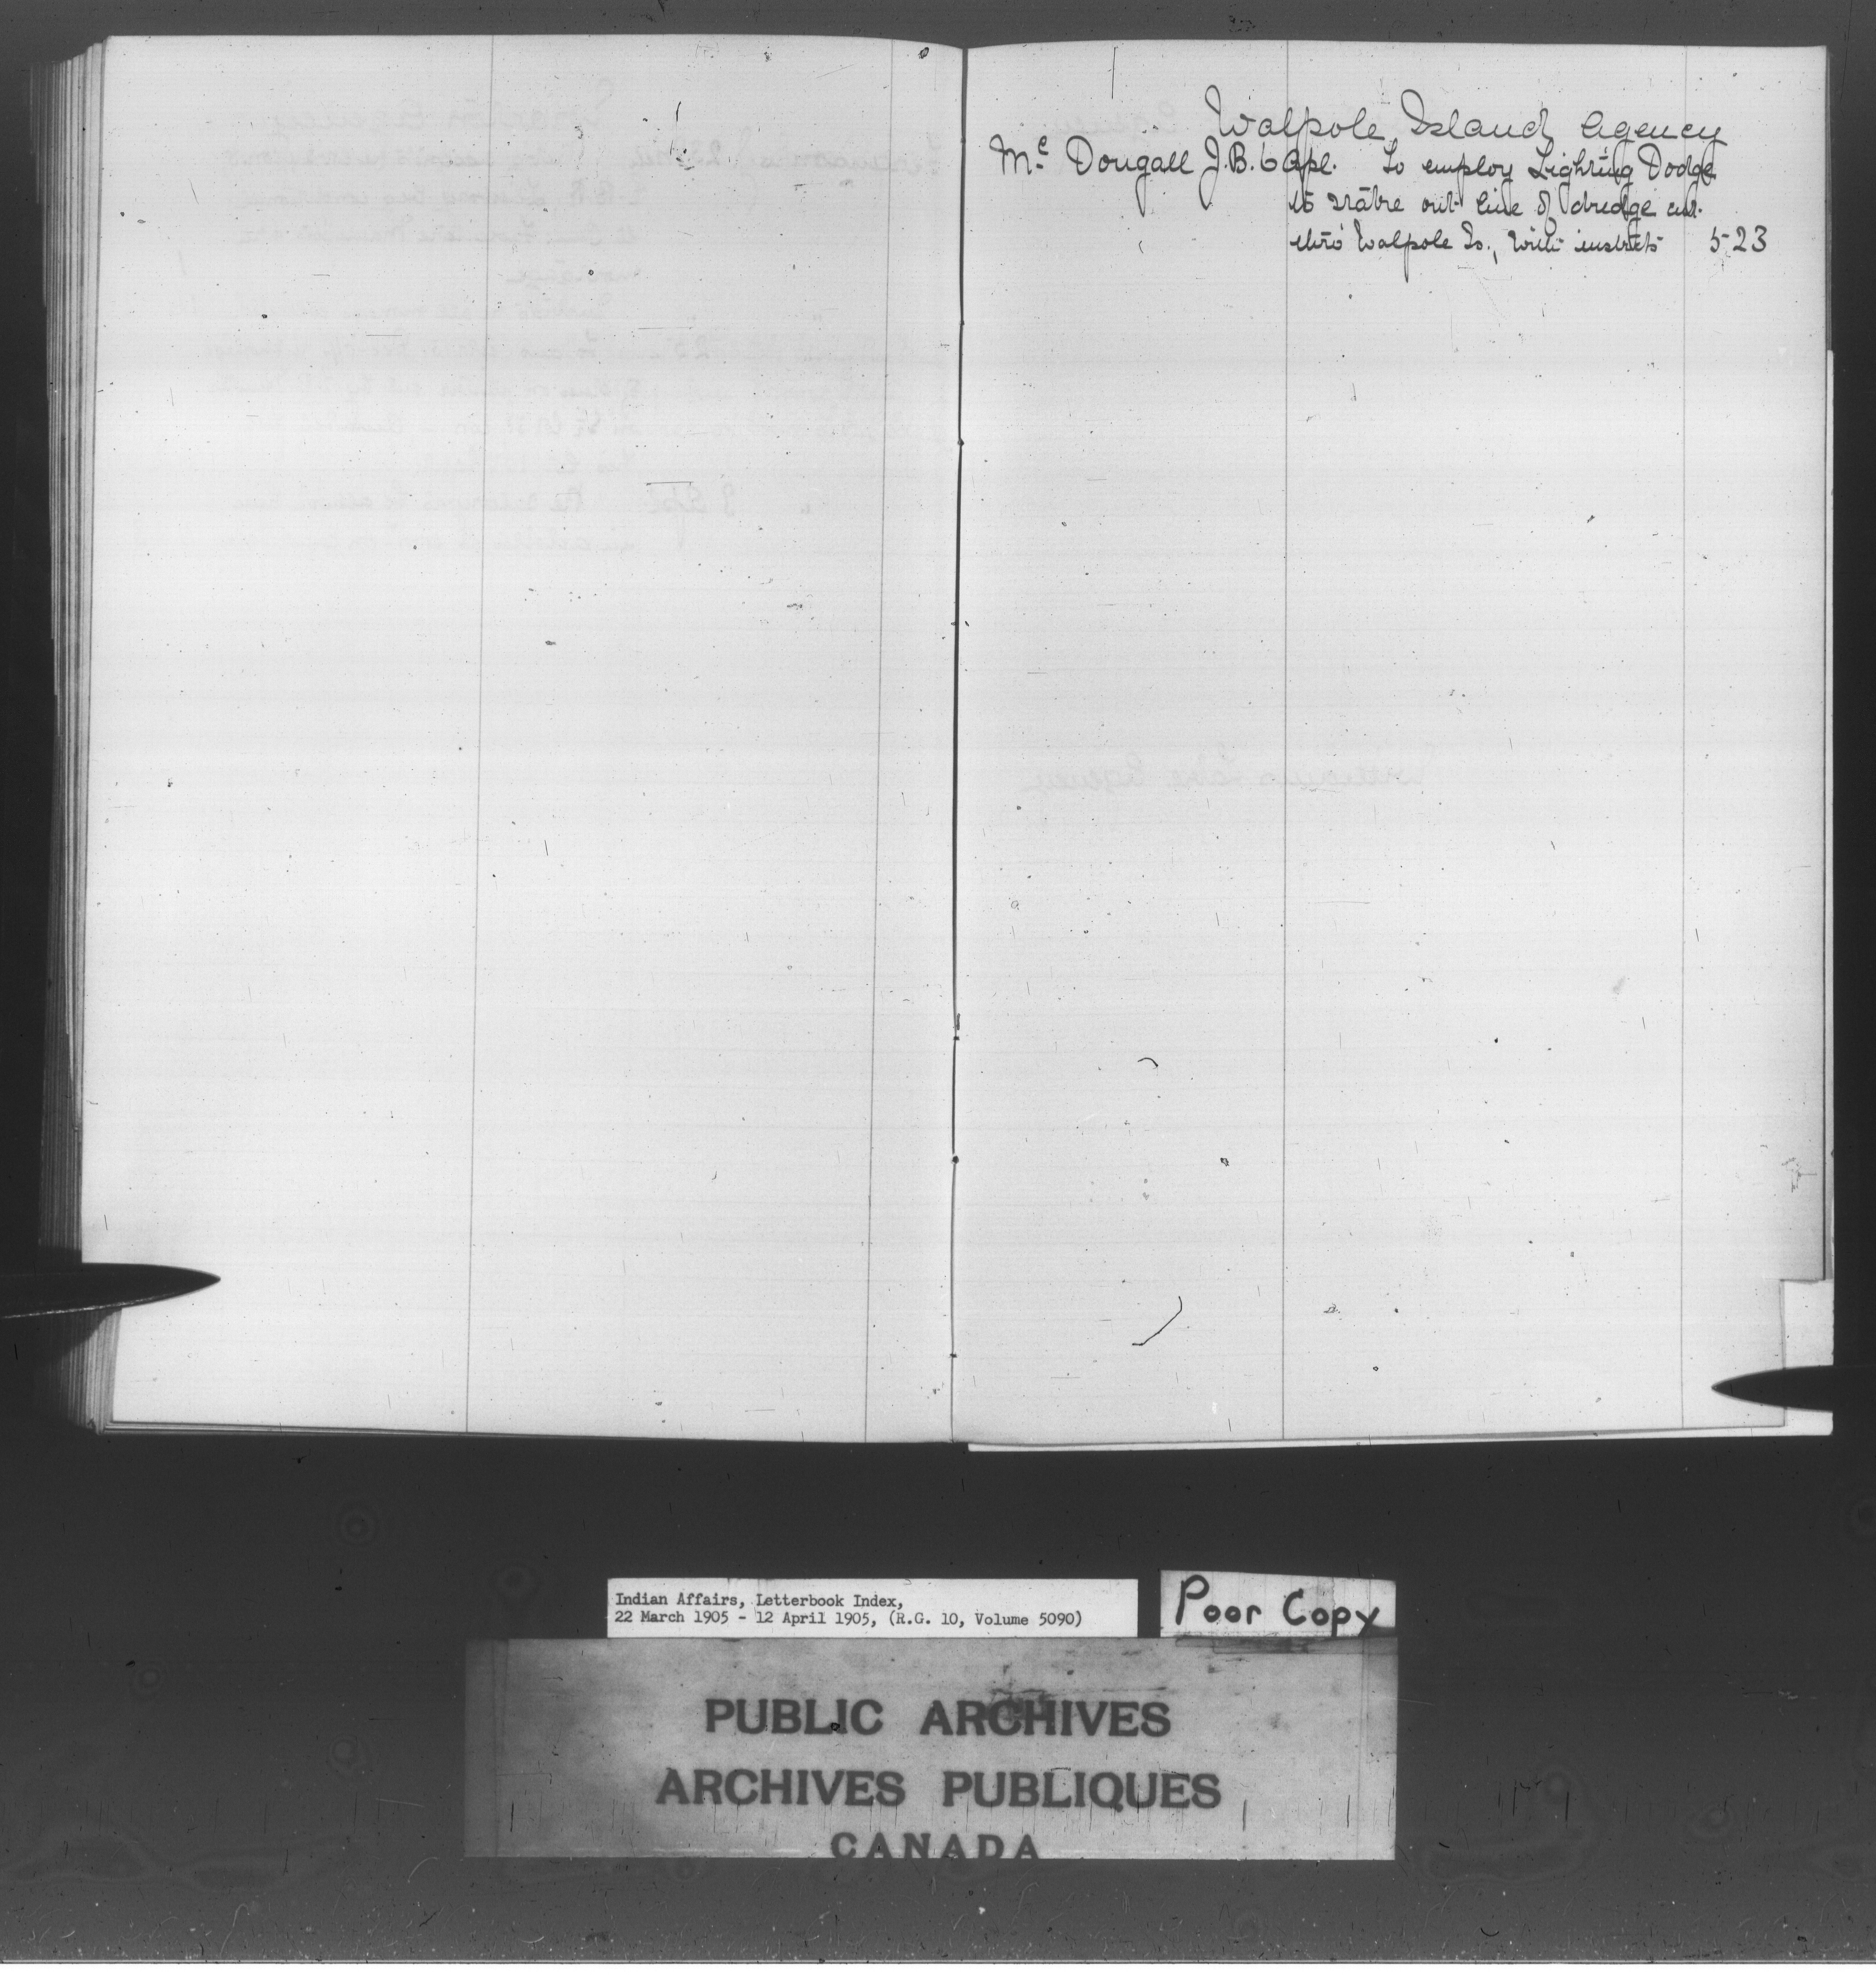 Walpole Island Agency
Mc Dougall J.B. 6 Apl. To employ Lighting Dodge
to stake out line of dredge cut
thro' Walpole Is., With instrcts 523
Indian Affairs, Letterbook Index,
22 March 1905 - 12 April 1905, (R.G. 10, Volume 5090)
Poor Copy
PUBLIC ARCHIVES
ARCHIVES PUBLIQUES
CANADA